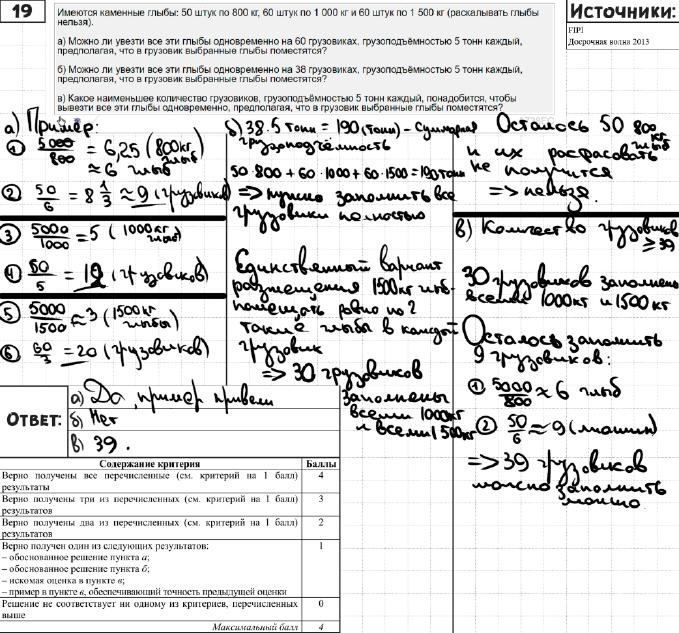 19
Имеются каменные глыбы: 50 штук по 800 кг, 60 штук по 1 000 кг и 60 штук по 1 500 кг (раскалывать глыбы
нельзя).
а) Можно ли увезти все эти глыбы одновременно на 60 грузовиках, грузоподъёмностью 5 тонн каждый,
предполагая, что в грузовик выбранные глыбы поместятся?
б) Можно ли увезти все эти глыбы одновременно на 38 грузовиках, грузоподъёмностью 5 тонн каждый,
предполагая, что в грузовик выбранные глыбы поместятся?
в) Какое наименьшее количество грузовиков, грузоподъёмностью 5 тонн каждый, понадобится, чтобы
вывезти все эти глыбы одновременно, предполагая, что в грузовик выбранные глыбы поместятся?
Источники:
FIPI
Досрочная волна 2013
а) Пример:
1 5000/800 = 6,25 (800 кг.
глыб)
≈ 6 глыб
2 50/6 = 8 1/3 ≈ 9 (грузовиков)
3 5000/1000 = 5 (1000 кг
глыбы)
4 60/5 = 12 (грузовиков)
5 5000/1500 ≈ 3 (1500 кг
глыбы)
6 60/3 = 20 (грузовиков)
б) 38·5 тонн = 190 (тонн) - суммарная
грузоподъёмность
50·800 + 60·1000 + 60·1500 = 190 тонн
=> нужно заполнить все
грузовики полностью
Единственный вариант
размещения 1500 кг глыб -
помещать ровно по 2
такие глыбы в каждый
грузовик
=> 30 грузовиков
заполнены
всеми 1000 кг
и всеми 1500 кг
Осталось 50 800 кг
глыб
и их расфасовать
не получится
=> нельзя.
в) Количество грузовиков
≥ 39
30 грузовиков заполнены
всеми 1000 кг и 1500 кг
Осталось заполнить
9 грузовиков:
1 5000/800 ≈ 6 глыб
2 50/6 ≈ 9 (машин)
=> 39 грузовиков
можно заполнить
можно
ОТВЕТ:
а) Да, пример привели
б) Нет
в) 39.
Содержание критерия Баллы
Верно получены все перечисленные (см. критерий на 1 балл) 4
результаты
Верно получены три из перечисленных (см. критерий на 1 балл) 3
результатов
Верно получены два из перечисленных (см. критерий на 1 балл) 2
результатов
Верно получен один из следующих результатов: 1
– обоснованное решение пункта а;
– обоснованное решение пункта б;
– искомая оценка в пункте в;
– пример в пункте в, обеспечивающий точность предыдущей оценки
Решение не соответствует ни одному из критериев, перечисленных 0
выше
Максимальный балл 4